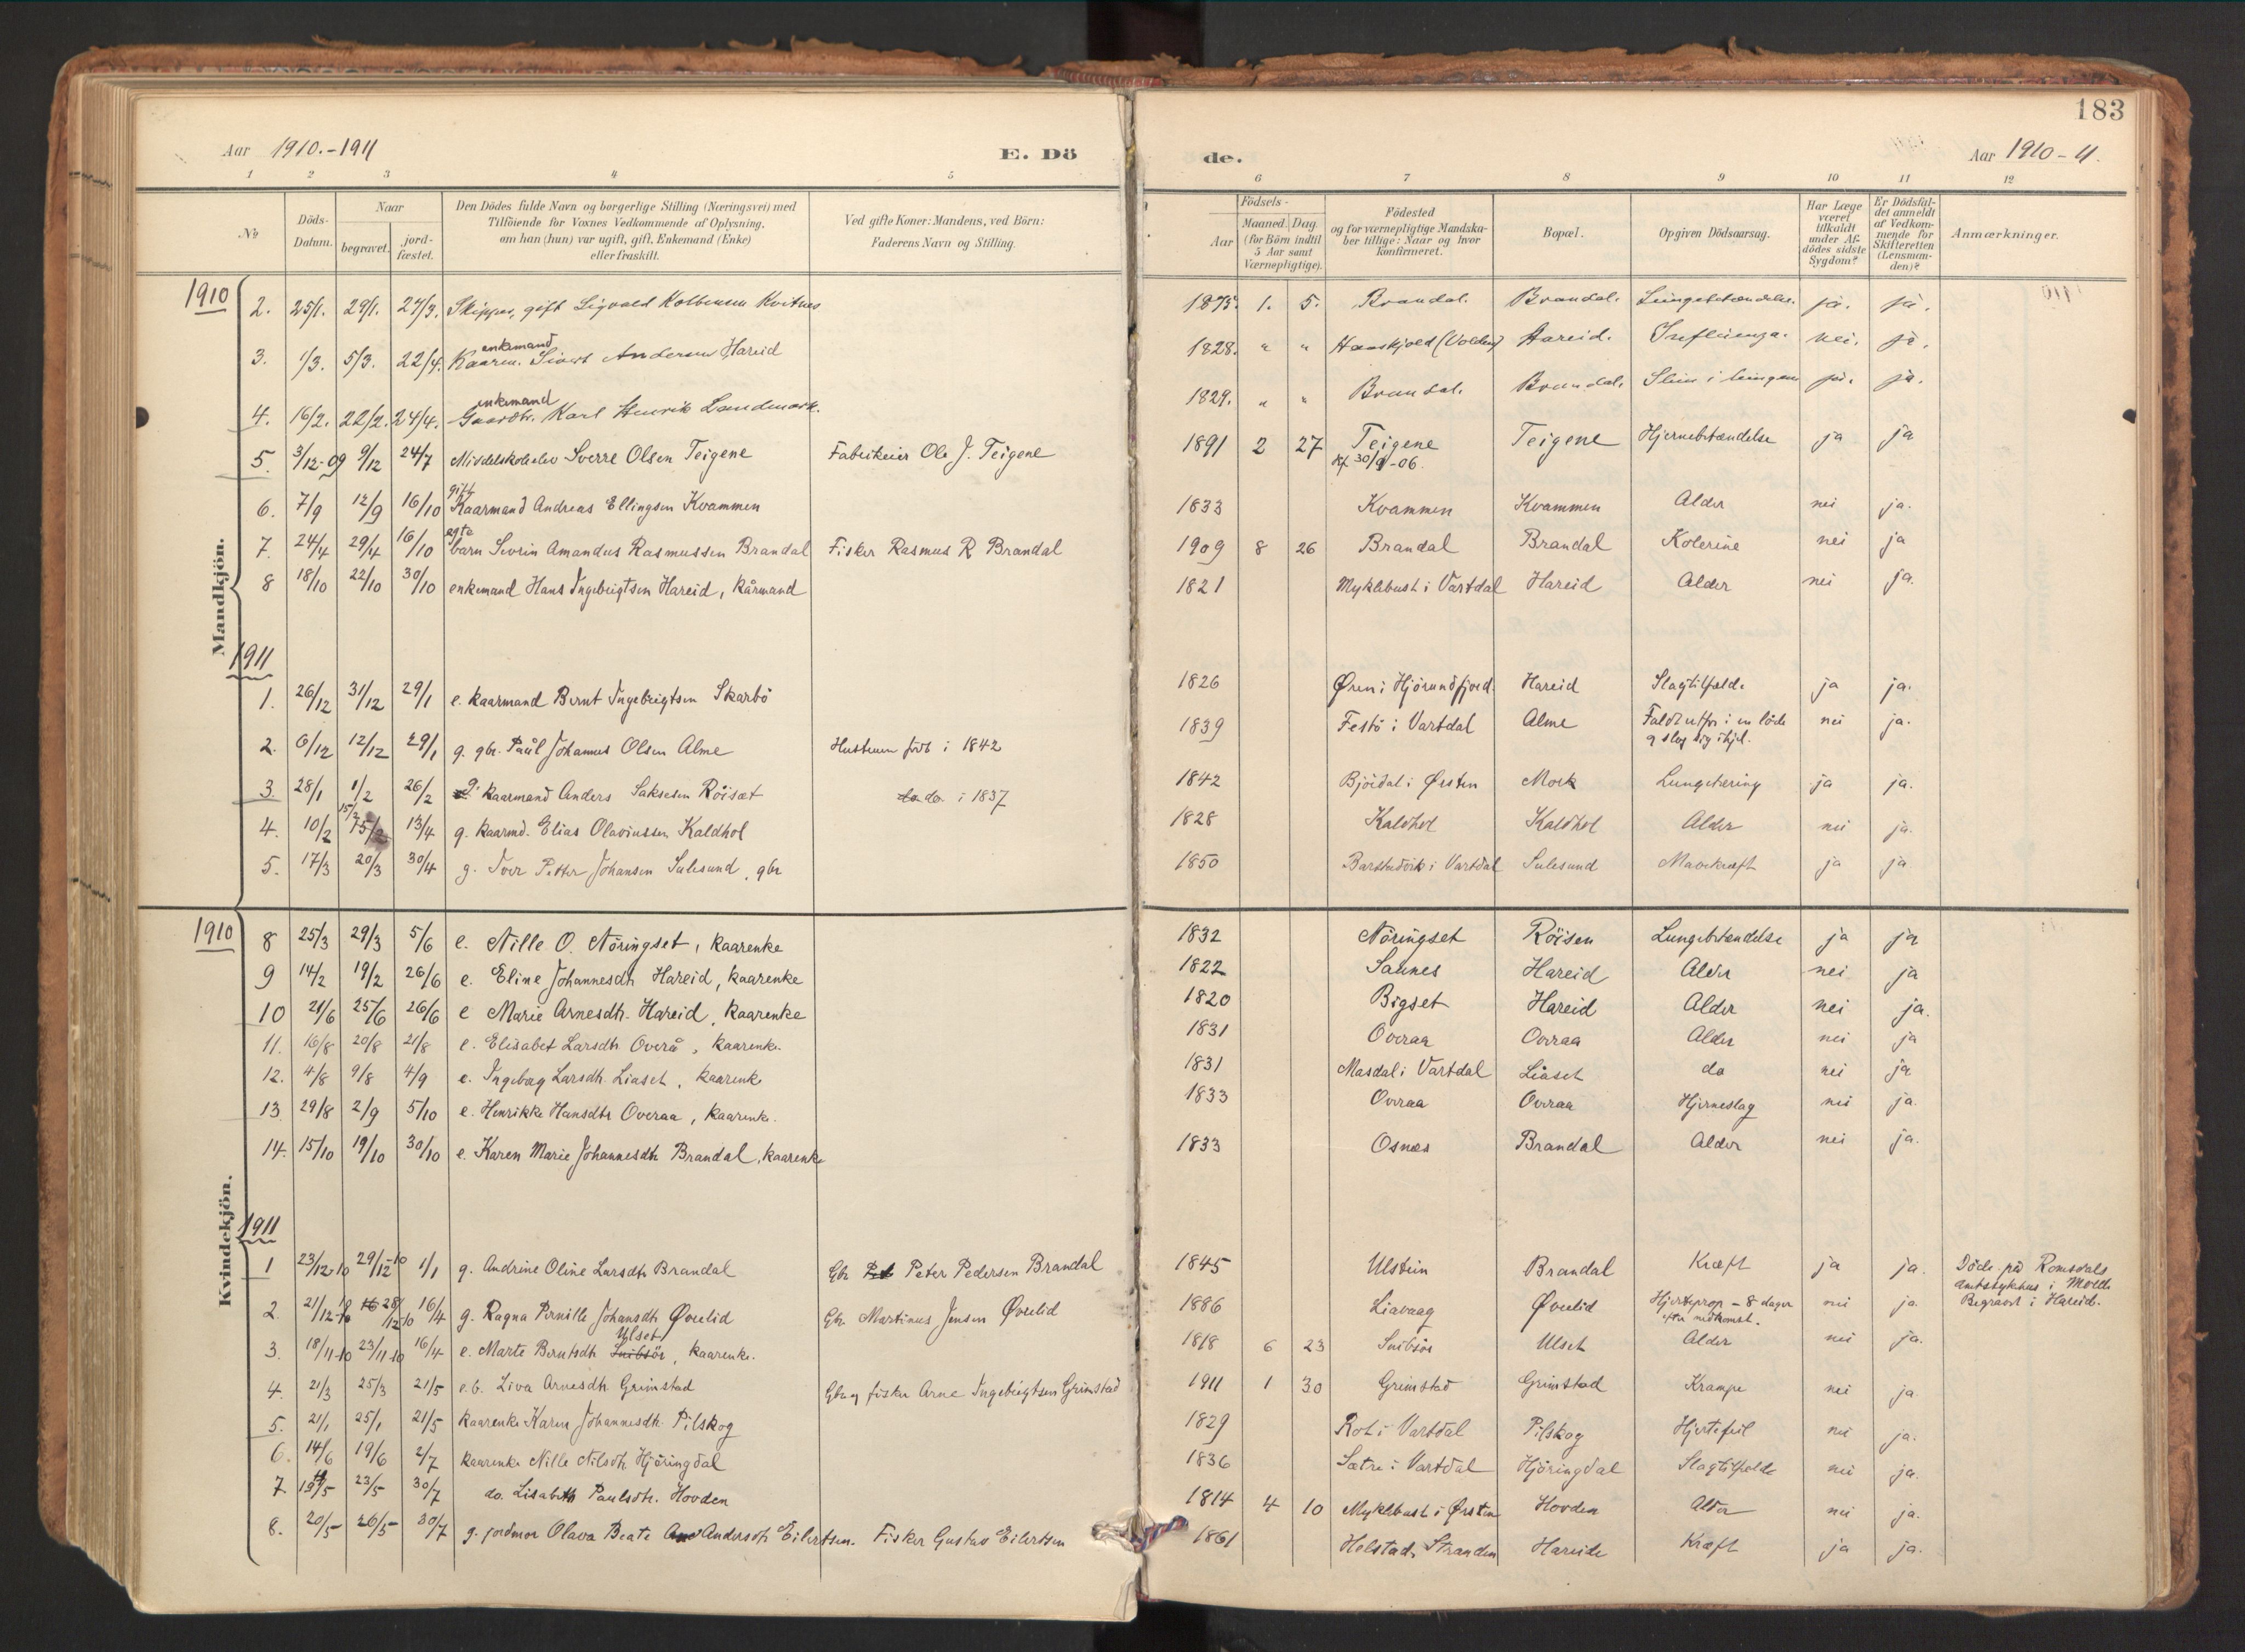 183
Aar 1910.-1911
E. Dö
de.
Aar 1910-11.
1 2 3 4 5 6 7 8 9 10 11 12
No
Döds-Datum.
Naar
begravet.
jord-fæstet.
Den Dödes fulde Navn og borgerlige Stilling (Næringsvei) med
Tilföiende for Voxnes Vedkommende af Oplysning,
om han (hun) var ugift, gift, Enkemand (Enke)
eller fraskilt.
Ved gifte Koner: Mandens, ved Börn:
Faderens Navn og Stilling.
Födsels-
Aar
Maaned. Dag.
(for Börn indtil
5 Aar samt
Værnepligtige).
Födested
og for værnepligtige Mandska-
ber tillige: Naar og hvor
konfirmeret.
Bopæl.
Opgiven Dödsaarsag.
Har Læge
været
tilkaldt
under Af-
dödes sidste
Sygdom?
Er Dödsfal-
det anmeldt
af Vedkom-
mende for
Skifteretten
(Lensman-
den)?
Anmærkninger.
Mandkjön.
1910
2. 25/1. 29/1. 27/3. Skipper, gift Sigvald Kolbensen Kvitnes 1875. 1. 5. Brandal. Brandal. Lungebetændelse. ja. ja.
enkemand
3. 1/3. 5/3. 22/4. Kaarm. Sivert Andersen Hareid 1828. " " (Volden) Hareid. Influenza. nei. ja.
enkemand
4. 16/2. 22/2. 24/4. Gaardbr. Karl Henrik Landmark. 1829. " " Brandal. Brandal. Slim i lungen ja. ja.
5. 3/12-09 9/12 24/7 Middelskoleelev Sverre Olsen Teigene Fabrikeier Ole J. Teigene 1891 2 27 Teigene Teigene Hjernebetændelse ja ja
Kf. 30/9-06.
gift
6. 7/9 12/9 16/10 Kaarmand Andreas Ellingsen Kvammen 1833 Kvammen Kvammen Alder nei ja.
egte
7. 24/4 29/4 16/10 barn Sevrin Amandus Rasmussen Brandal Fisker Rasmus R Brandal 1909 8 26 Brandal Brandal Kolerine nei ja
8 18/10 22/10 30/10 enkemand Hans Ingebrigtsen Hareid, kårmand 1821 Myklebust i Vartdal Hareid Alder nei ja.
1911
1. 26/12 31/12 29/1 e. kaarmand Bernt Ingebrigtsen Skarbö 1826 Øren i Hjörundfjord. Hareid Slagtilfælde ja ja.
2. 6/12 12/12 29/1 g. gbr. Paul Johannes Olsen Alme Hustruen född i 1842 1839 Festö i Vartdal Alme Faldt utfor i en löde nei ja.
g slog sig ihjel.
3 28/1 1/2 26/2 g. kaarmand Anders Saksesen Röiset do. i 1837 1842 Björdal i Ørsten Mork Lungetæring ja ja.
15/2
4. 10/2 15/2 13/4 g. kaarmd. Elias Olavinssen Kaldhol 1828 Kaldhol Kaldhol Alder nei ja.
5. 17/3 20/3 30/4 g. Iver Petter Johansen Sulesund, gbr 1850 Barstadvik i Vartdal Sulesund Mavekræft ja ja
Kvindekjön.
1910
8 25/3 29/3 5/6 e. Nille O. Nöringset, kaarenke 1832 Nöringset Röisen Lungebetændelse ja ja
9 14/2 19/2 26/6 e. Eline Johannesdtr Hareid, kaarenke 1822 Saunes Hareid Alder nei ja
10 21/6 25/6 26/6 e Marie Arnesdtr. Hareid, kaarenke 1820 Bigset Hareid Alder nei ja.
11. 16/8 20/8 21/8 e. Elisabet Larsdtr Overå, kaarenke. 1831 Overaa Overaa Alder nei ja
12. 4/8 9/8 4/9 e. Ingeborg Larsdtr. Liaset, kaarenke 1831 Masdal i Vartdal Liaset do nei ja
13. 29/8 2/9 5/10 e. Henrikke Hansdtr Overaa, kaarenke. 1833 Overaa Overaa Hjerneslag nei ja.
14. 15/10 19/10 30/10 e. Karen Marie Johannesdtr Brandal, kaarenke 1833 Osnes Brandal Alder nei ja.
1911
1 23/12-10 29/12-10 1/1 g. Andrine Oline Larsdtr Brandal Gbr Peter Pedersen Brandal 1845 Ulstein Brandal Kræft ja ja. Döde på Romsdals
amtssykehus i Molde
Begravet i Hareid.
2. 21/12-10 28/12-10 16/4 g. Ragna Pernille Johansdtr Øvrelid Gbr. Martinus Jensen Øvrelid 1886 Liavaag Øvrelid Hjerteprop - 8 dager nei ja
efter nedkomst.
Ulset
3. 18/11-10 23/11-10 16/4 e. Marte Berntsdtr Snibsör, kaarenke. 1818 6 23 Snibsör Ulset Alder nei ja.
4. 21/3 25/3 21/5 e.b. Liva Arnesdtr. Grimstad Gbr og fisker Arne Ingebrigtsen Grimstad 1911 1 30 Grimstad Grimstad Krampe nei ja.
5. 21/1 25/1 21/5 kaarenke Karen Johannesdtr. Pilskog 1829 Rot i Vartdal Pilskog Hjertefeil nei ja.
6. 14/6 19/6 2/7 kaarenke Nille Nilsdtr Hjöringdal 1836 Sætre i Vartdal Hjöringdal Slagtilfælde nei ja.
7 19/5 23/5 30/7 do. Lisabeth Paulsdtr. Hovden 1814 4 10 Myklebust i Ørsten Hovden Alder nei ja.
8. 20/5 26/5 30/7 g. jordmor Olava Beate Andersdtr Eilertsen. Fisker Gustav Eilertsen 1861 Helstad, Stranden Hareide Kræft ja ja.